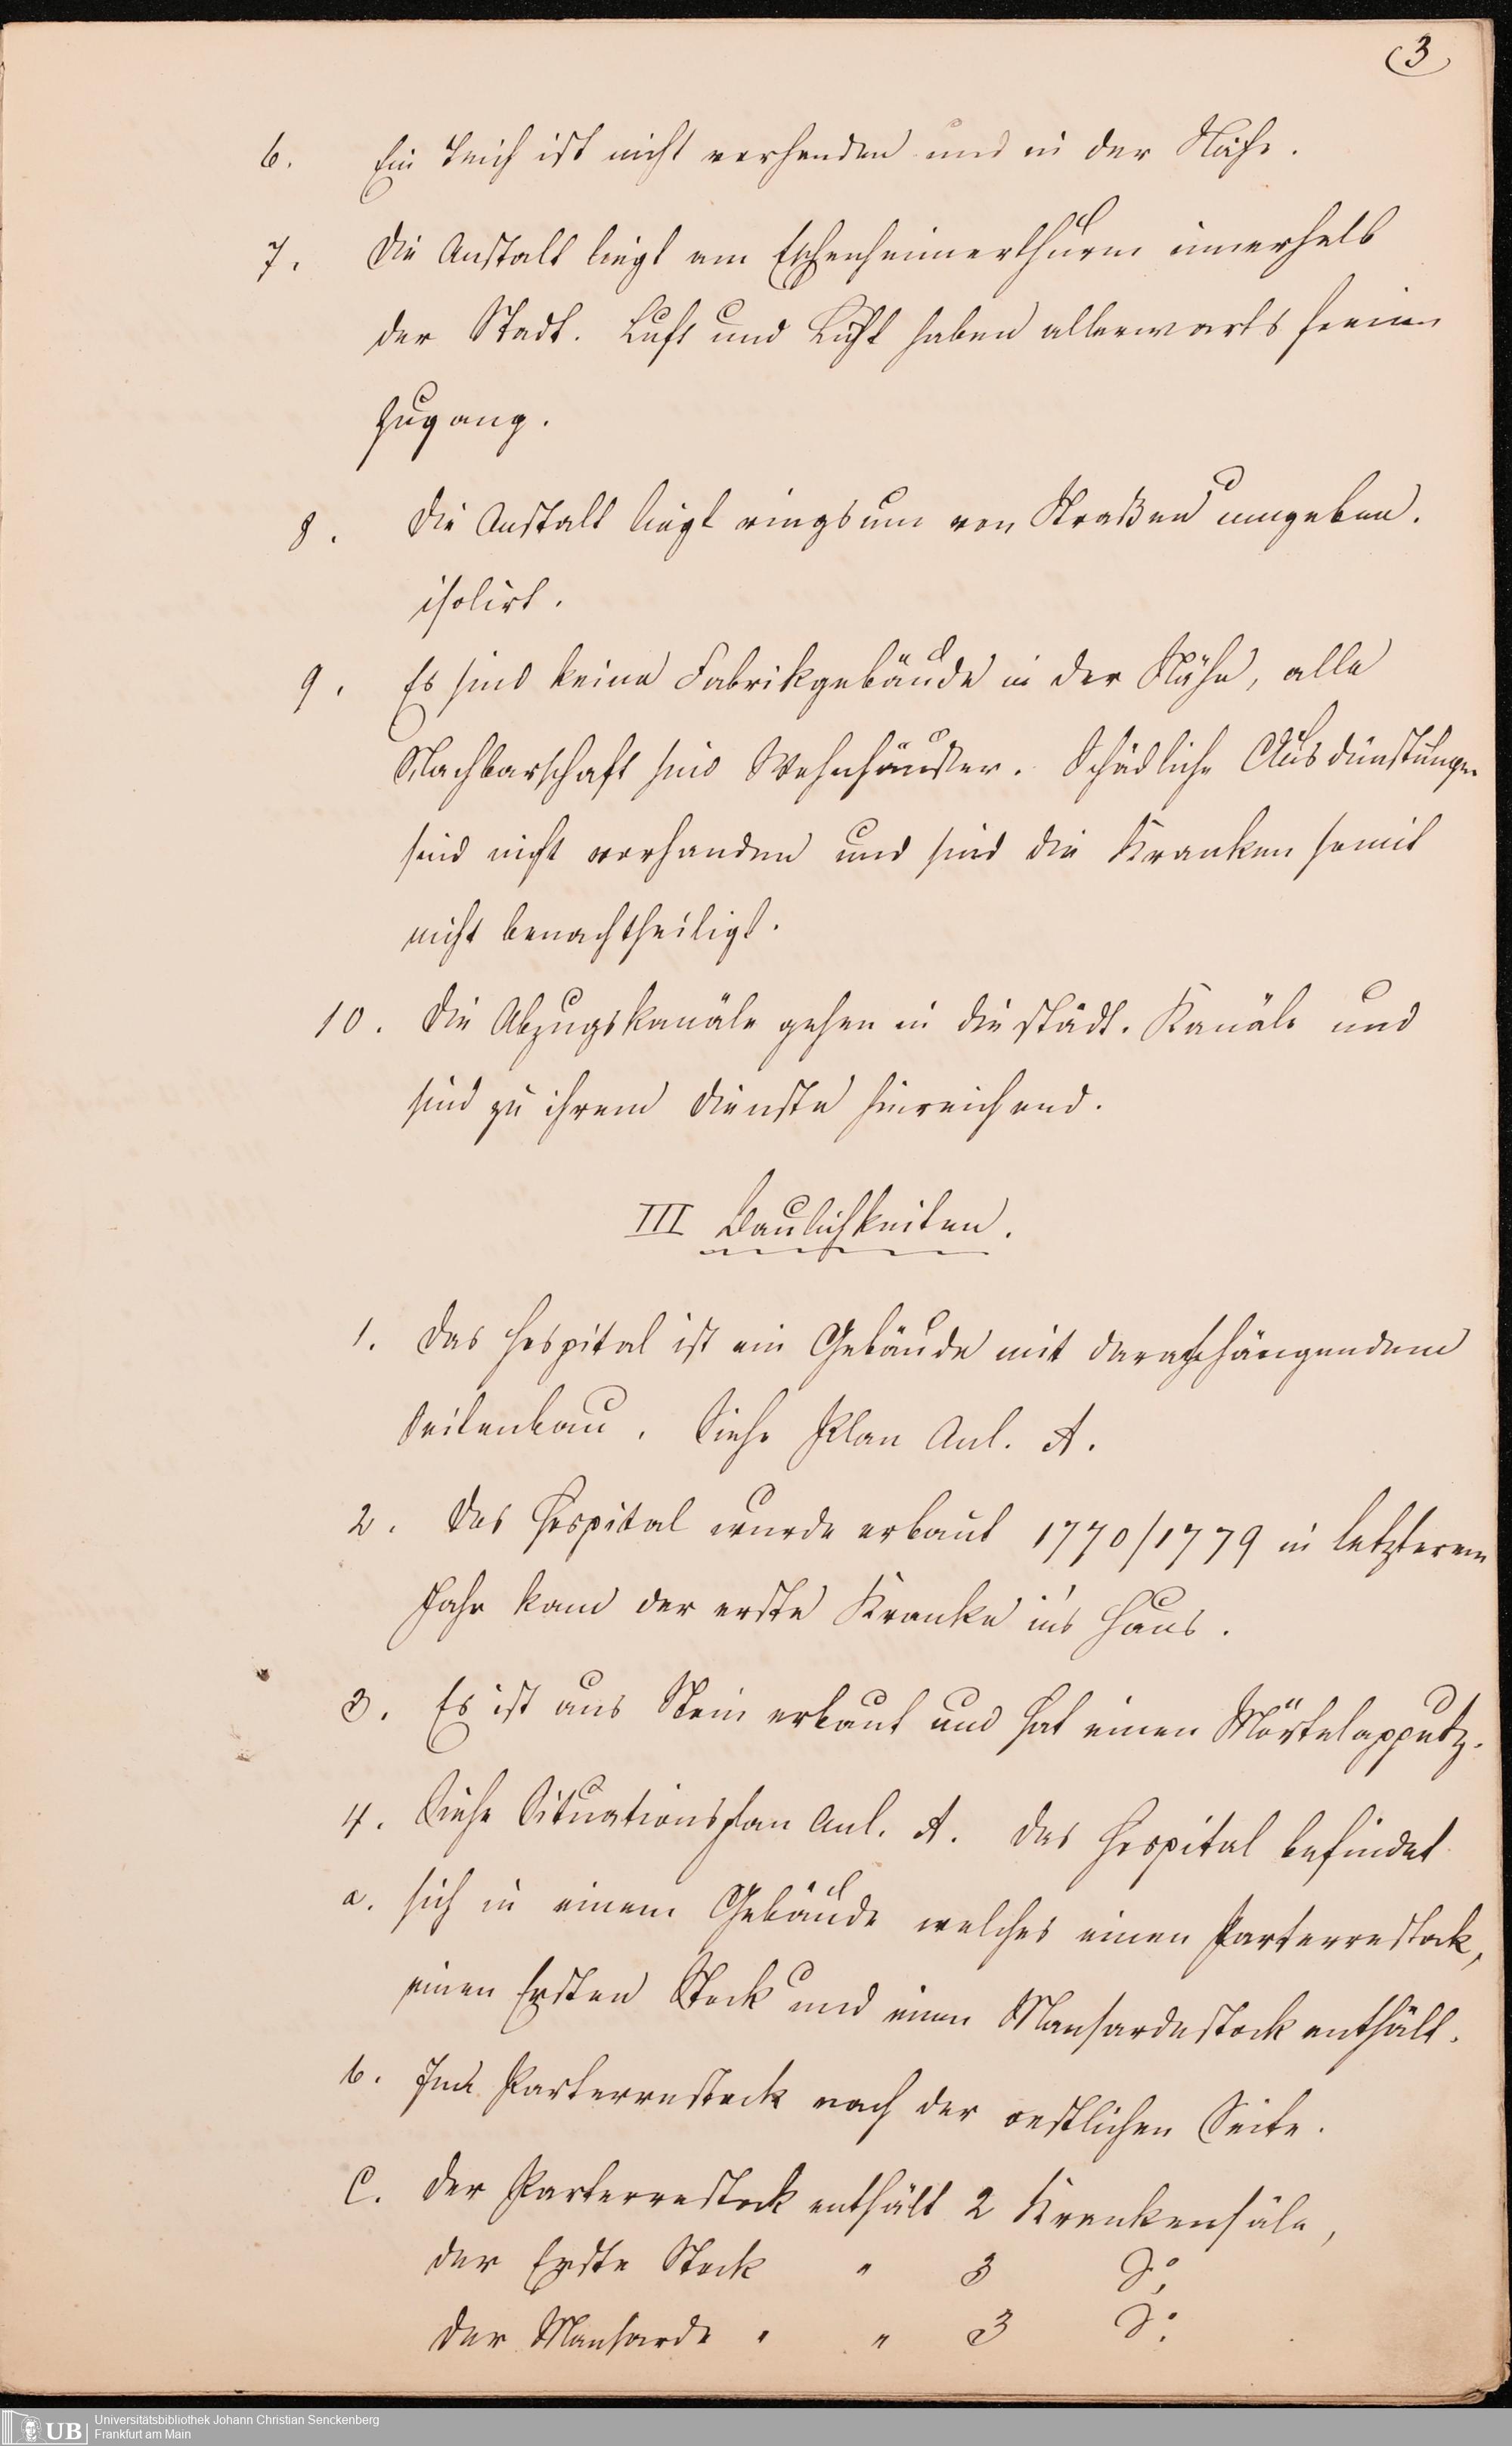 3
6. Ein Teich ist nicht vorhanden und in der Nähe.
7. Die Anstalt liegt am Eschenheimerthurm innerhalb
der Stadt. Luft und Licht haben allerwärts freien
Zugang.
8. Die Anstalt liegt ringsum von Straßen umgeben.
isolirt.
9. Es sind keine Fabrikgebäude in der Nähe, alle
Nachbarschaft sind Wohnhäuser. Schädliche Ausdünstungen
sind nicht vorhanden und sind die Kranken somit
nicht benachtheiligt.
10. Die Abzugskanäle gehen in die städt. Kanäle und
sind zu ihrem Dienste hinreichend.
III Baulichkeiten.
1. Das Hospital ist ein Gebäude mit
Seitenbau. Siehe Plan Anl. A.
2. Das Hospital wurde erbaut 1770/1779 in letzterem
Jahr kam der erste Kranke in's Haus.
3. Es ist aus Stein erbaut und hat einen
4. Siehe Situationsplan Anl. A. Das Hospital befindet
a. sich in einem Gebäude welches einen Parterrestock,
einen Ersten Stock und einen Mansardestock enthält.
b. Im Parterrestock nach der oestlichen Seite.
C. Der Parterrestock enthält 2 Krankensäle,
der Erste Stock " 3 Do,
der Mansarde " " 3 Do.
UB Universitätsbibliothek Johann Christian Senckenberg
Frankfurt am Main